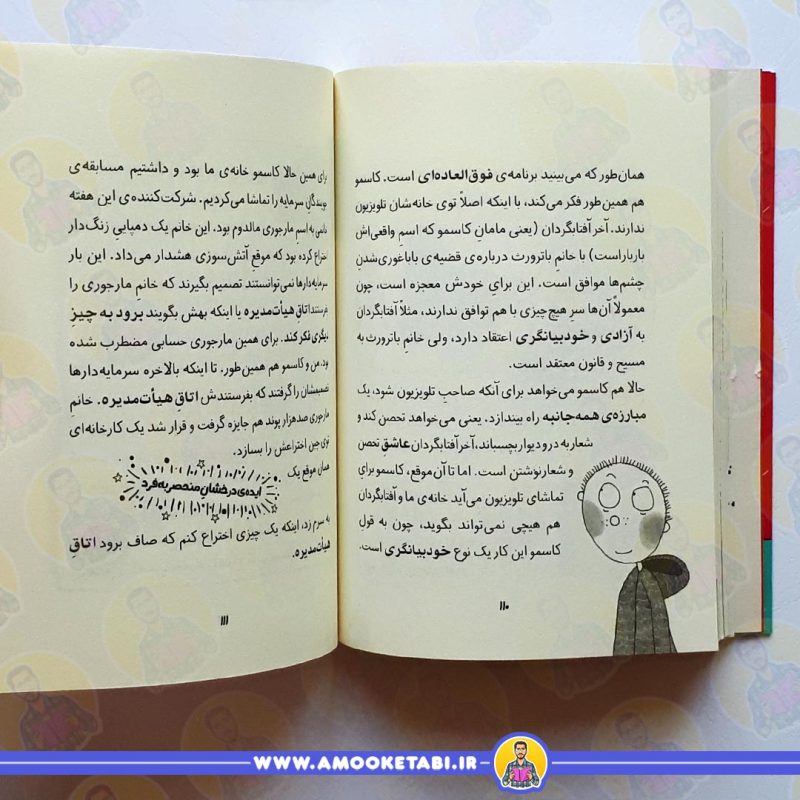 همان‌طور که می‌بینید برنامه‌ی فوق‌العاده‌ای است. کاسمو
هم همین‌طور فکر می‌کند، با اینکه اصلاً توی خانه‌شان تلویزیون
ندارند. آخر آفتابگردان (یعنی مامانِ کاسمو که اسمِ واقعی‌اش
بارباراست) با خانم باترورث درباره‌ی قضیه‌ی باباغوری‌شدنِ
چشم‌ها موافق است. این برایِ خودش معجزه است، چون
معمولاً آن‌ها سرِ هیچ‌چیزی با هم توافق ندارند، مثلاً آفتابگردان
به آزادی و خودبیانگری اعتقاد دارد، ولی خانم باترورث به
مسیح و قانون معتقد است.
حالا هم کاسمو می‌خواهد برای آنکه صاحبِ تلویزیون شود، یک
مبارزه‌ی همه‌جانبه راه بیندازد. یعنی می‌خواهد تحصن کند و
شعار به در و دیوار بچسباند، آخر آفتابگردان عاشقِ تحصن
و شعارنوشتن است. اما تا آن موقع، کاسمو برایِ
تماشای تلویزیون می‌آید خانه‌ی ما و آفتابگردان
هم هیچی نمی‌تواند بگوید، چون به قولِ
کاسمو این کار یک نوع خودبیانگری است.
۱۱۰
برای همین حالا کاسمو خانه‌ی ما بود و داشتیم مسابقه‌ی
سرمایه را تماشا می‌کردیم. شرکت‌کننده‌ی این هفته
به اسمِ مارجوری مالدوم بود. این خانم یک دمپاییِ زنگ‌دار
اختراع کرده بود که موقعِ آتش‌سوزی هشدار می‌داد. این بار
سرمایه‌دارها نمی‌توانستند تصمیم بگیرند که خانمِ مارجوری را
بفرستند اتاقِ هیأت‌مدیره یا اینکه بهش بگویند برود به چیزِ
دیگری فکر کند. برای همین مارجوری حسابی مضطرب شده
بود، من و کاسمو هم همین‌طور. تا اینکه بالاخره سرمایه‌دارها
تصمیمشان را گرفتند که بفرستندش اتاقِ هیأت‌مدیره. خانمِ
مارجوری صدهزار پوند هم جایزه گرفت و قرار شد یک کارخانه‌ای
توی چین اختراعش را بسازد.
همان موقع یک
ایده‌ی درخشانِ منحصربه‌فرد
به سرم زد، اینکه یک چیزی اختراع کنم که صاف برود اتاقِ
هیأت‌مدیره.
۱۱۱
WWW.AMOOKETABI.IR